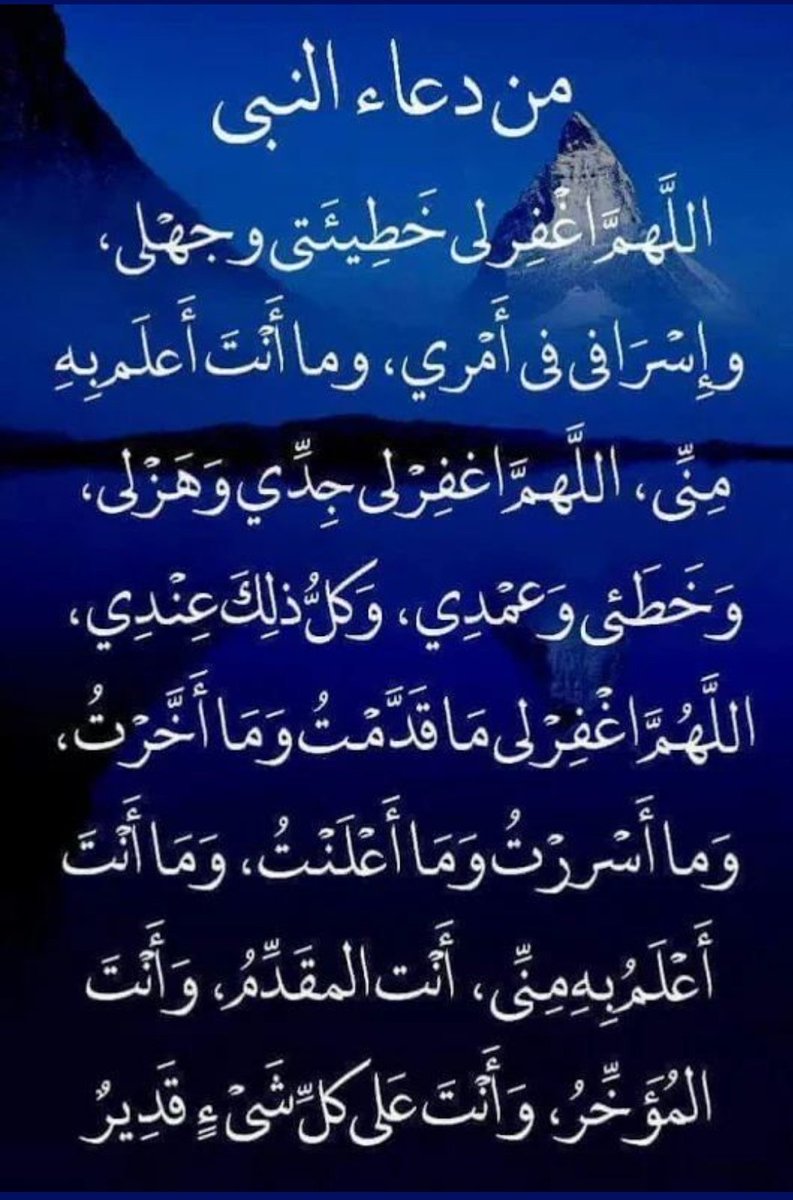 من دعاء النبى
اللَّهمَّ اغْفِر لى خَطِيئَتى وجهْلى،
وإِسْرَافى فى أَمْري، وما أَنْتَ أَعلَم بِهِ
مِنِّى، اللَّهمَّ اغفِرْ لى جِدِّي وَهَزْلى،
وَخَطَئى وَعمْدِي، وَكلُّ ذلِكَ عِنْدِي،
اللَّهُمَّ اغْفِرْ لى مَا قَدَّمْتُ وَمَا أَخَّرْتُ،
وَما أَسْررْتُ وَمَا أَعْلَنْتُ، وَمَا أَنْتَ
أَعْلَمُ بِهِ مِنِّى، أَنْت المقَدِّمُ، وَأَنْتَ
المُؤَخِّرُ، وَأَنْتَ عَلى كلِّ شَىْءٍ قَدِيرٌ